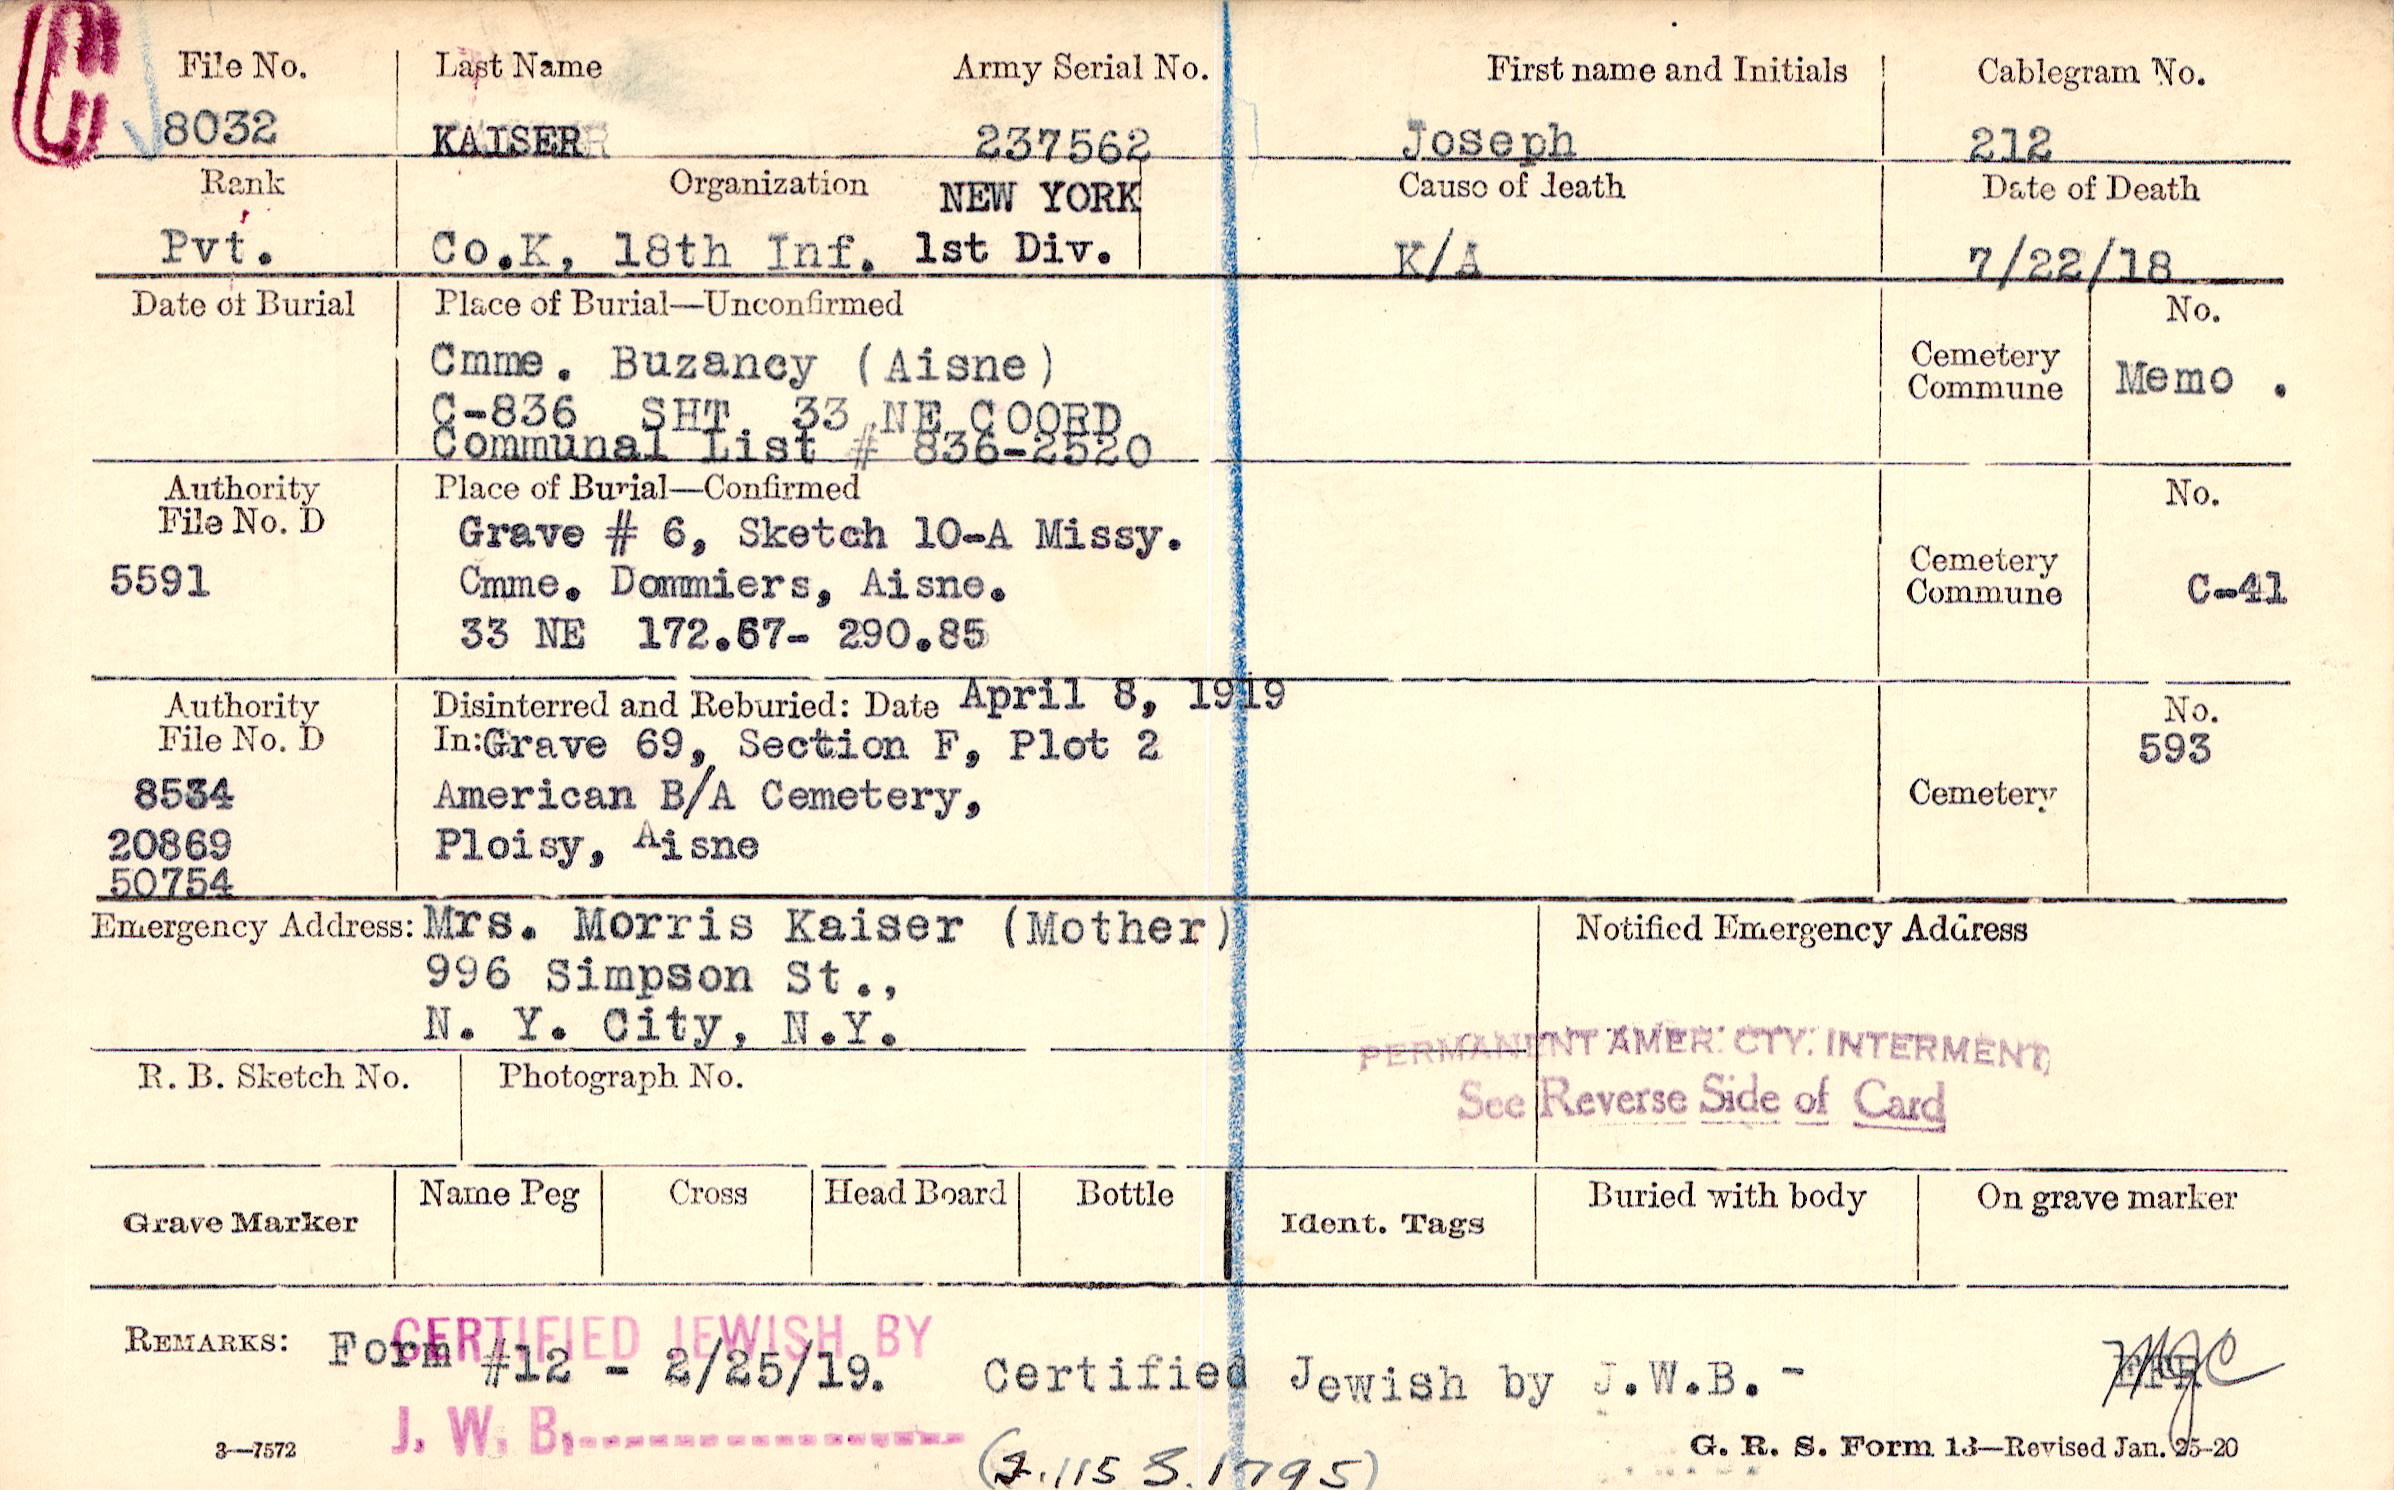 C
File No. Last Name Army Serial No. First name and Initials Cablegram No.
8032 KAISER 237562 Joseph 212
Rank Organization NEW YORK Cause of death Date of Death
Pvt. Co.K, 18th Inf. 1st Div. K/A 7/22/18
Date of Burial Place of Burial—Unconfirmed No.
Cmme. Buzancy (Aisne) Cemetery Commune Memo .
C-836 SHT 33 NE COORD
Communal List # 836-2520
Authority File No. D Place of Burial—Confirmed No.
Grave # 6, Sketch 10-A Missy.
5591 Cmme. Dommiers, Aisne. Cemetery Commune C-41
33 NE 172.67- 290.85
Authority File No. D Disinterred and Reburied: Date April 8, 1919 No.
In:Grave 69, Section F, Plot 2 593
8534 American B/A Cemetery, Cemetery
20869 Ploisy, Aisne
50754
Emergency Address: Mrs. Morris Kaiser (Mother) Notified Emergency Address
996 Simpson St.,
N. Y. City, N.Y.
PERMANENT AMER. CTY. INTERMENT
See Reverse Side of Card
R. B. Sketch No. Photograph No.
Grave Marker Name Peg Cross Head Board Bottle Ident. Tags Buried with body On grave marker
CERTIFIED JEWISH BY
REMARKS: Form #12 - 2/25/19. Certified Jewish by J.W.B. -
J. W. B.-----------------
3—7572 G. R. S. Form 13—Revised Jan. 25-20
S.1795)